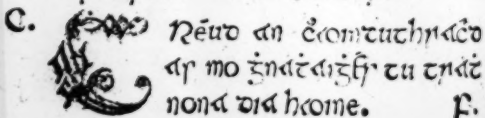 C. CRēud an ċomtuthraċd
as mo ġnáṫaiġh tu tráṫ
nona dia haoine. F.